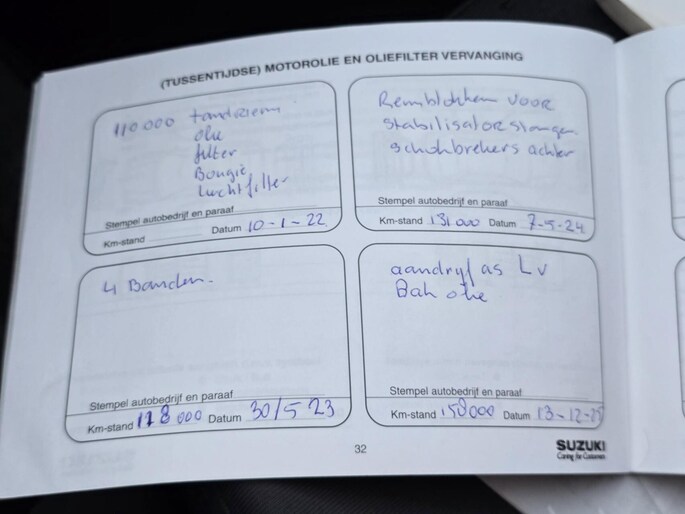 (TUSSENTIJDSE) MOTOROLIE EN OLIEFILTER VERVANGING
110 000 tandriem
olie
filter
Bougie
luchtfilter
Stempel autobedrijf en paraaf
Km-stand Datum 10-1-22
Remblokken VOOR
Stabilisator stangen
Schokbrekers achter
Stempel autobedrijf en paraaf
Km-stand 131 000 Datum 7-5-24
4 Banden.
Stempel autobedrijf en paraaf
Km-stand 118 000 Datum 30/5 23
aandrijf as Lv
Bak olie
Stempel autobedrijf en paraaf
Km-stand 150 000 Datum
32
SUZUKI
Caring for Customers